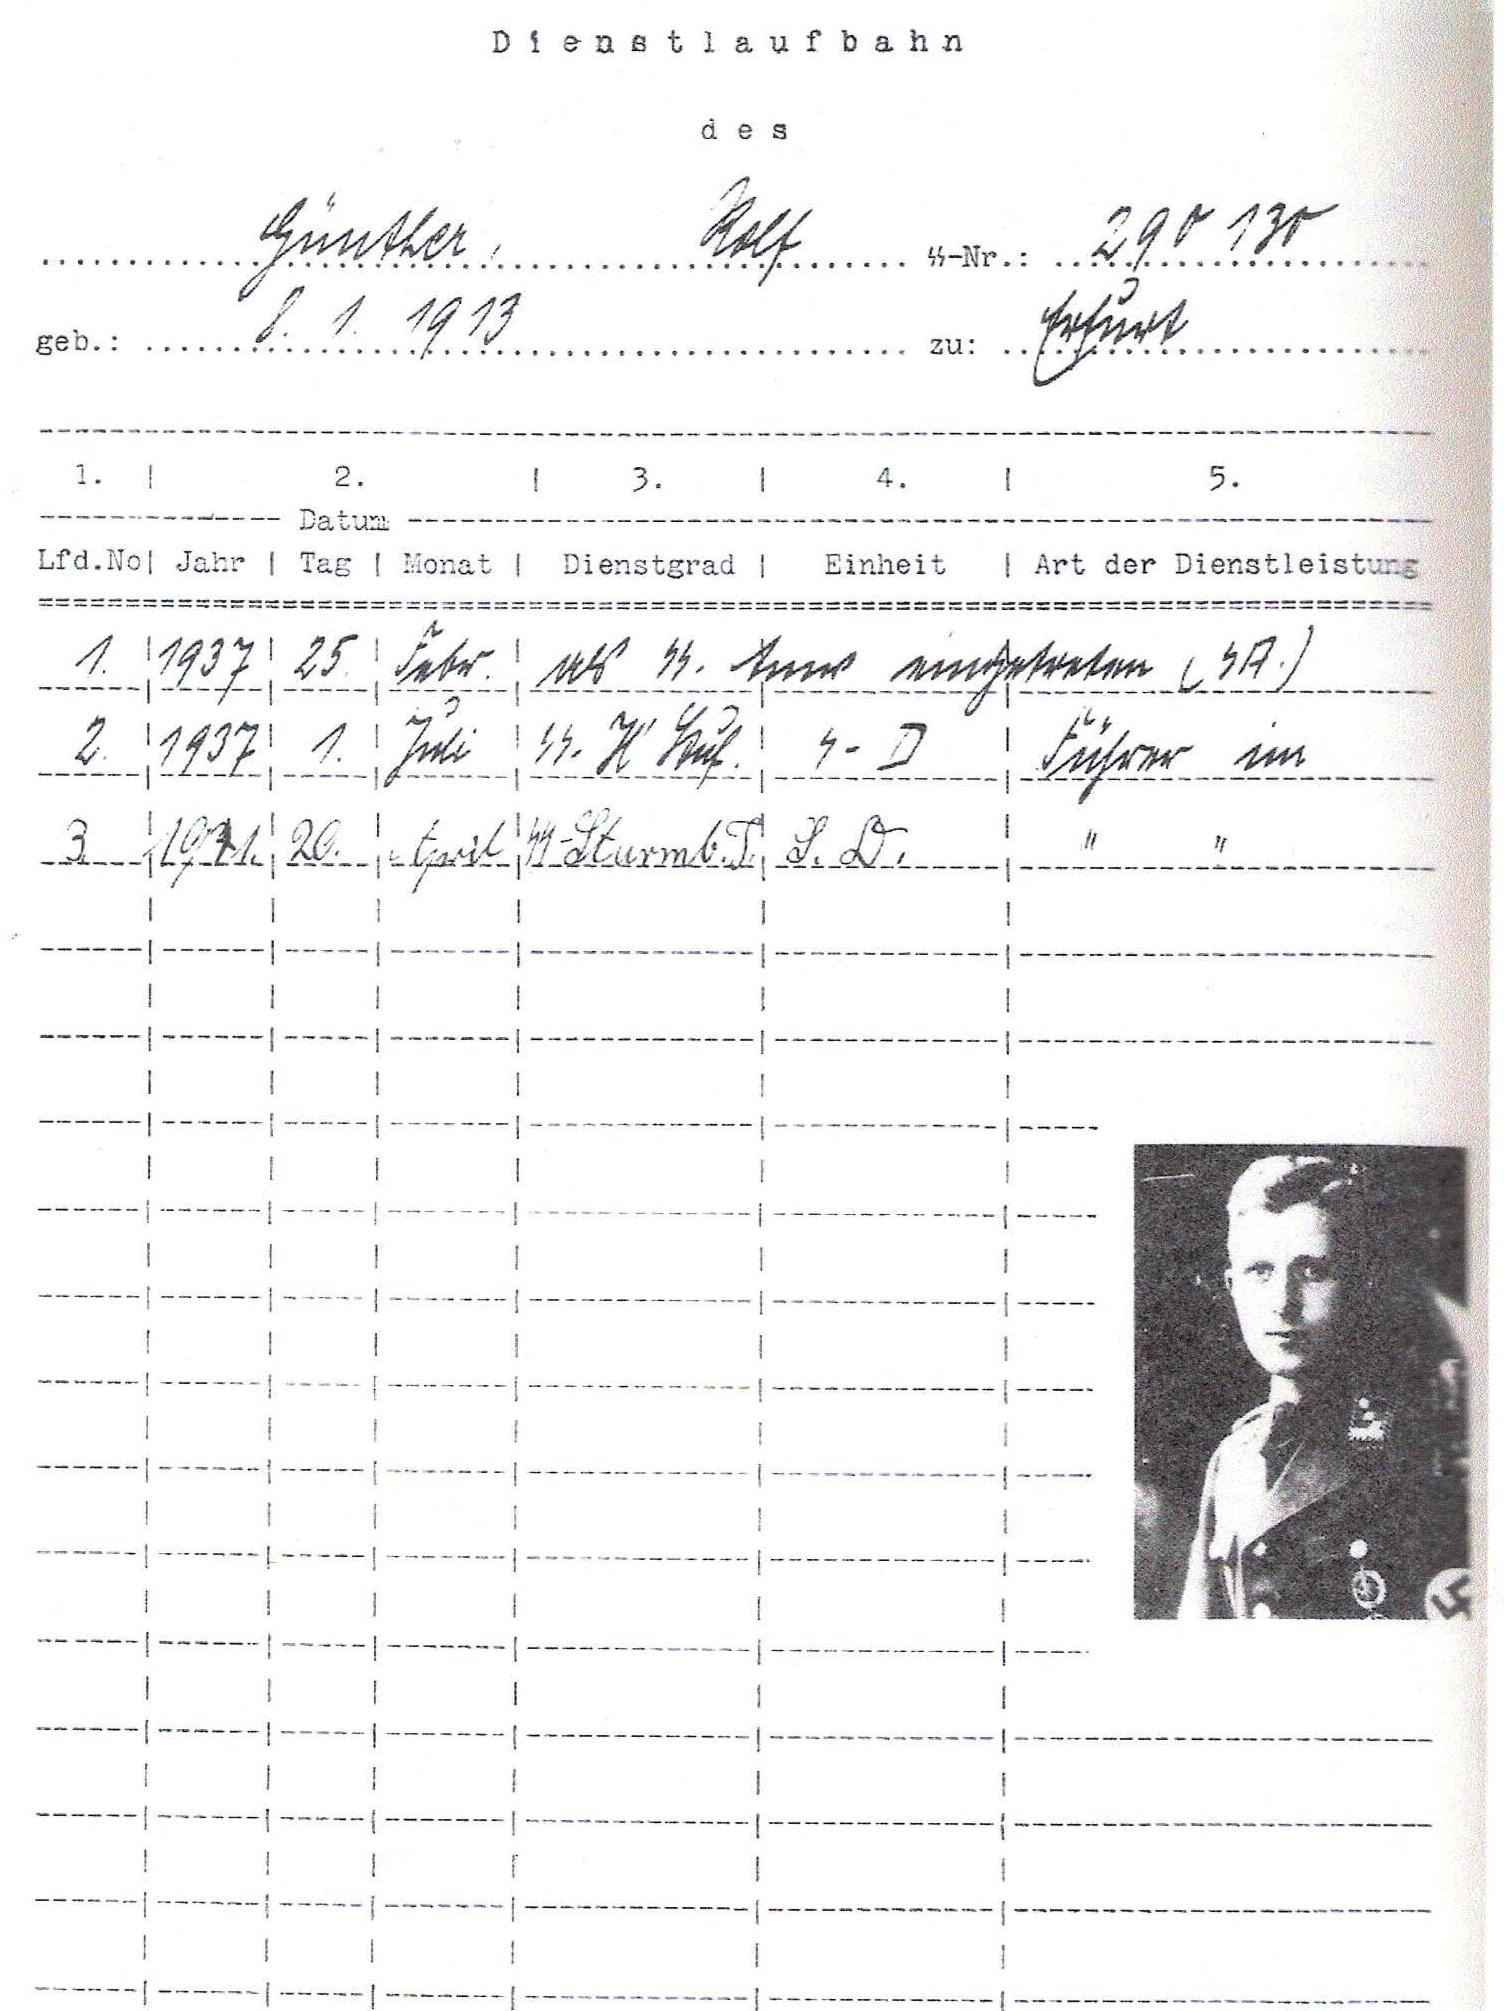 Dienstlaufbahn
des
Günther, Rolf ᛋᛋ-Nr.: 290 130
geb.: 8. 1. 1913 zu: Erfurt
1. | 2. | 3. | 4. | 5.
Datum
Lfd.No| Jahr | Tag | Monat | Dienstgrad | Einheit | Art der Dienstleistung
1. | 1937 | 25. | Febr. | als ᛋᛋ. Anw eingetreten (SA.)
2. | 1937 | 1. | Juli | ᛋᛋ-H'Stuf. | S-D | Führer im
3. | 1941. | 20. | April | ᛋᛋ-Sturmb.F. | S.D. | " "